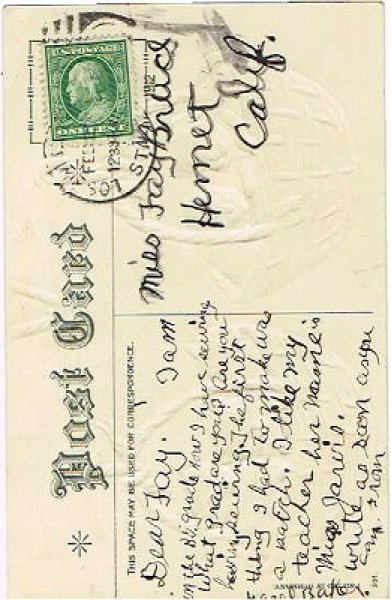 Post Card
THIS SPACE MAY BE USED FOR CORRESPONDENCE.
U.S. POSTAGE
ONE CENT
LOS
FEB
STA
1912
Miss Fay Bruce
Hemet
Calif.
Dear Fay. I am
in the grade now I have sewing
What grade are you in? Are you
having sewing. The first
thing I had to make was
a watch. I like my
teacher her name is
Miss Jarvis.
write as soon as you
can from